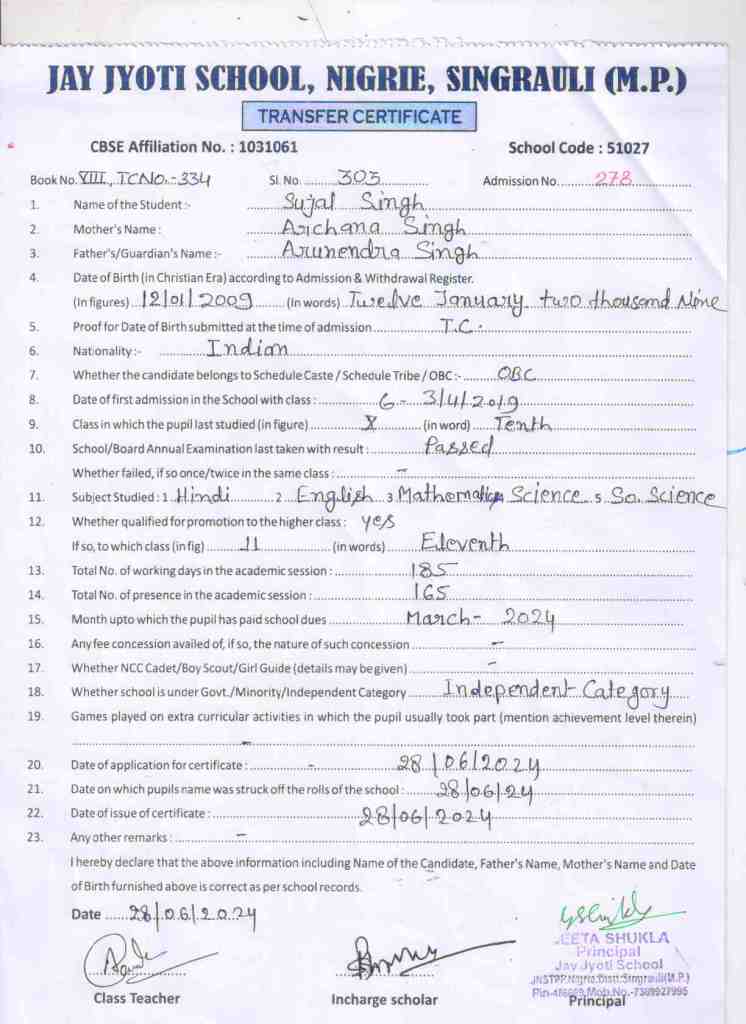 JAY JYOTI SCHOOL, NIGRIE, SINGRAULI (M.P.)
TRANSFER CERTIFICATE
CBSE Affiliation No. : 1031061 School Code : 51027
Book No. VIII, TCNO.-334 Sl. No. 303 Admission No. 278
1. Name of the Student :- Sujal Singh
2. Mother's Name : Archana Singh
3. Father's/Guardian's Name :- Arunendra Singh
4. Date of Birth (in Christian Era) according to Admission & Withdrawal Register.
(In figures) 12/01/2009 (In words) Twelve January two thousand Nine
5. Proof for Date of Birth submitted at the time of admission T.C.
6. Nationality :- Indian
7. Whether the candidate belongs to Schedule Caste / Schedule Tribe / OBC :- OBC
8. Date of first admission in the School with class : 6 - 3/4/2019
9. Class in which the pupil last studied (in figure) X (in word) Tenth
10. School/Board Annual Examination last taken with result : Passed
Whether failed, if so once/twice in the same class : -
11. Subject Studied : 1 Hindi 2 English 3 Mathematics Science 5 So. Science
12. Whether qualified for promotion to the higher class : yes
If so, to which class (in fig) 11 (in words) Eleventh
13. Total No. of working days in the academic session : 185
14. Total No. of presence in the academic session : 165
15. Month upto which the pupil has paid school dues March - 2024
16. Any fee concession availed of, if so, the nature of such concession -
17. Whether NCC Cadet/Boy Scout/Girl Guide (details may be given) -
18. Whether school is under Govt./Minority/Independent Category Independent Category
19. Games played on extra curricular activities in which the pupil usually took part (mention achievement level therein)
-
20. Date of application for certificate : - 28/06/2024
21. Date on which pupils name was struck off the rolls of the school : 28/06/24
22. Date of issue of certificate : 28/06/2024
23. Any other remarks : -
I hereby declare that the above information including Name of the Candidate, Father's Name, Mother's Name and Date
of Birth furnished above is correct as per school records.
Date 28/06/2024
SHUKLA
Principal
Jay Jyoti School
JNSTPP, Nigrie, Distt. Singrauli (M.P.)
Class Teacher Incharge scholar Principal